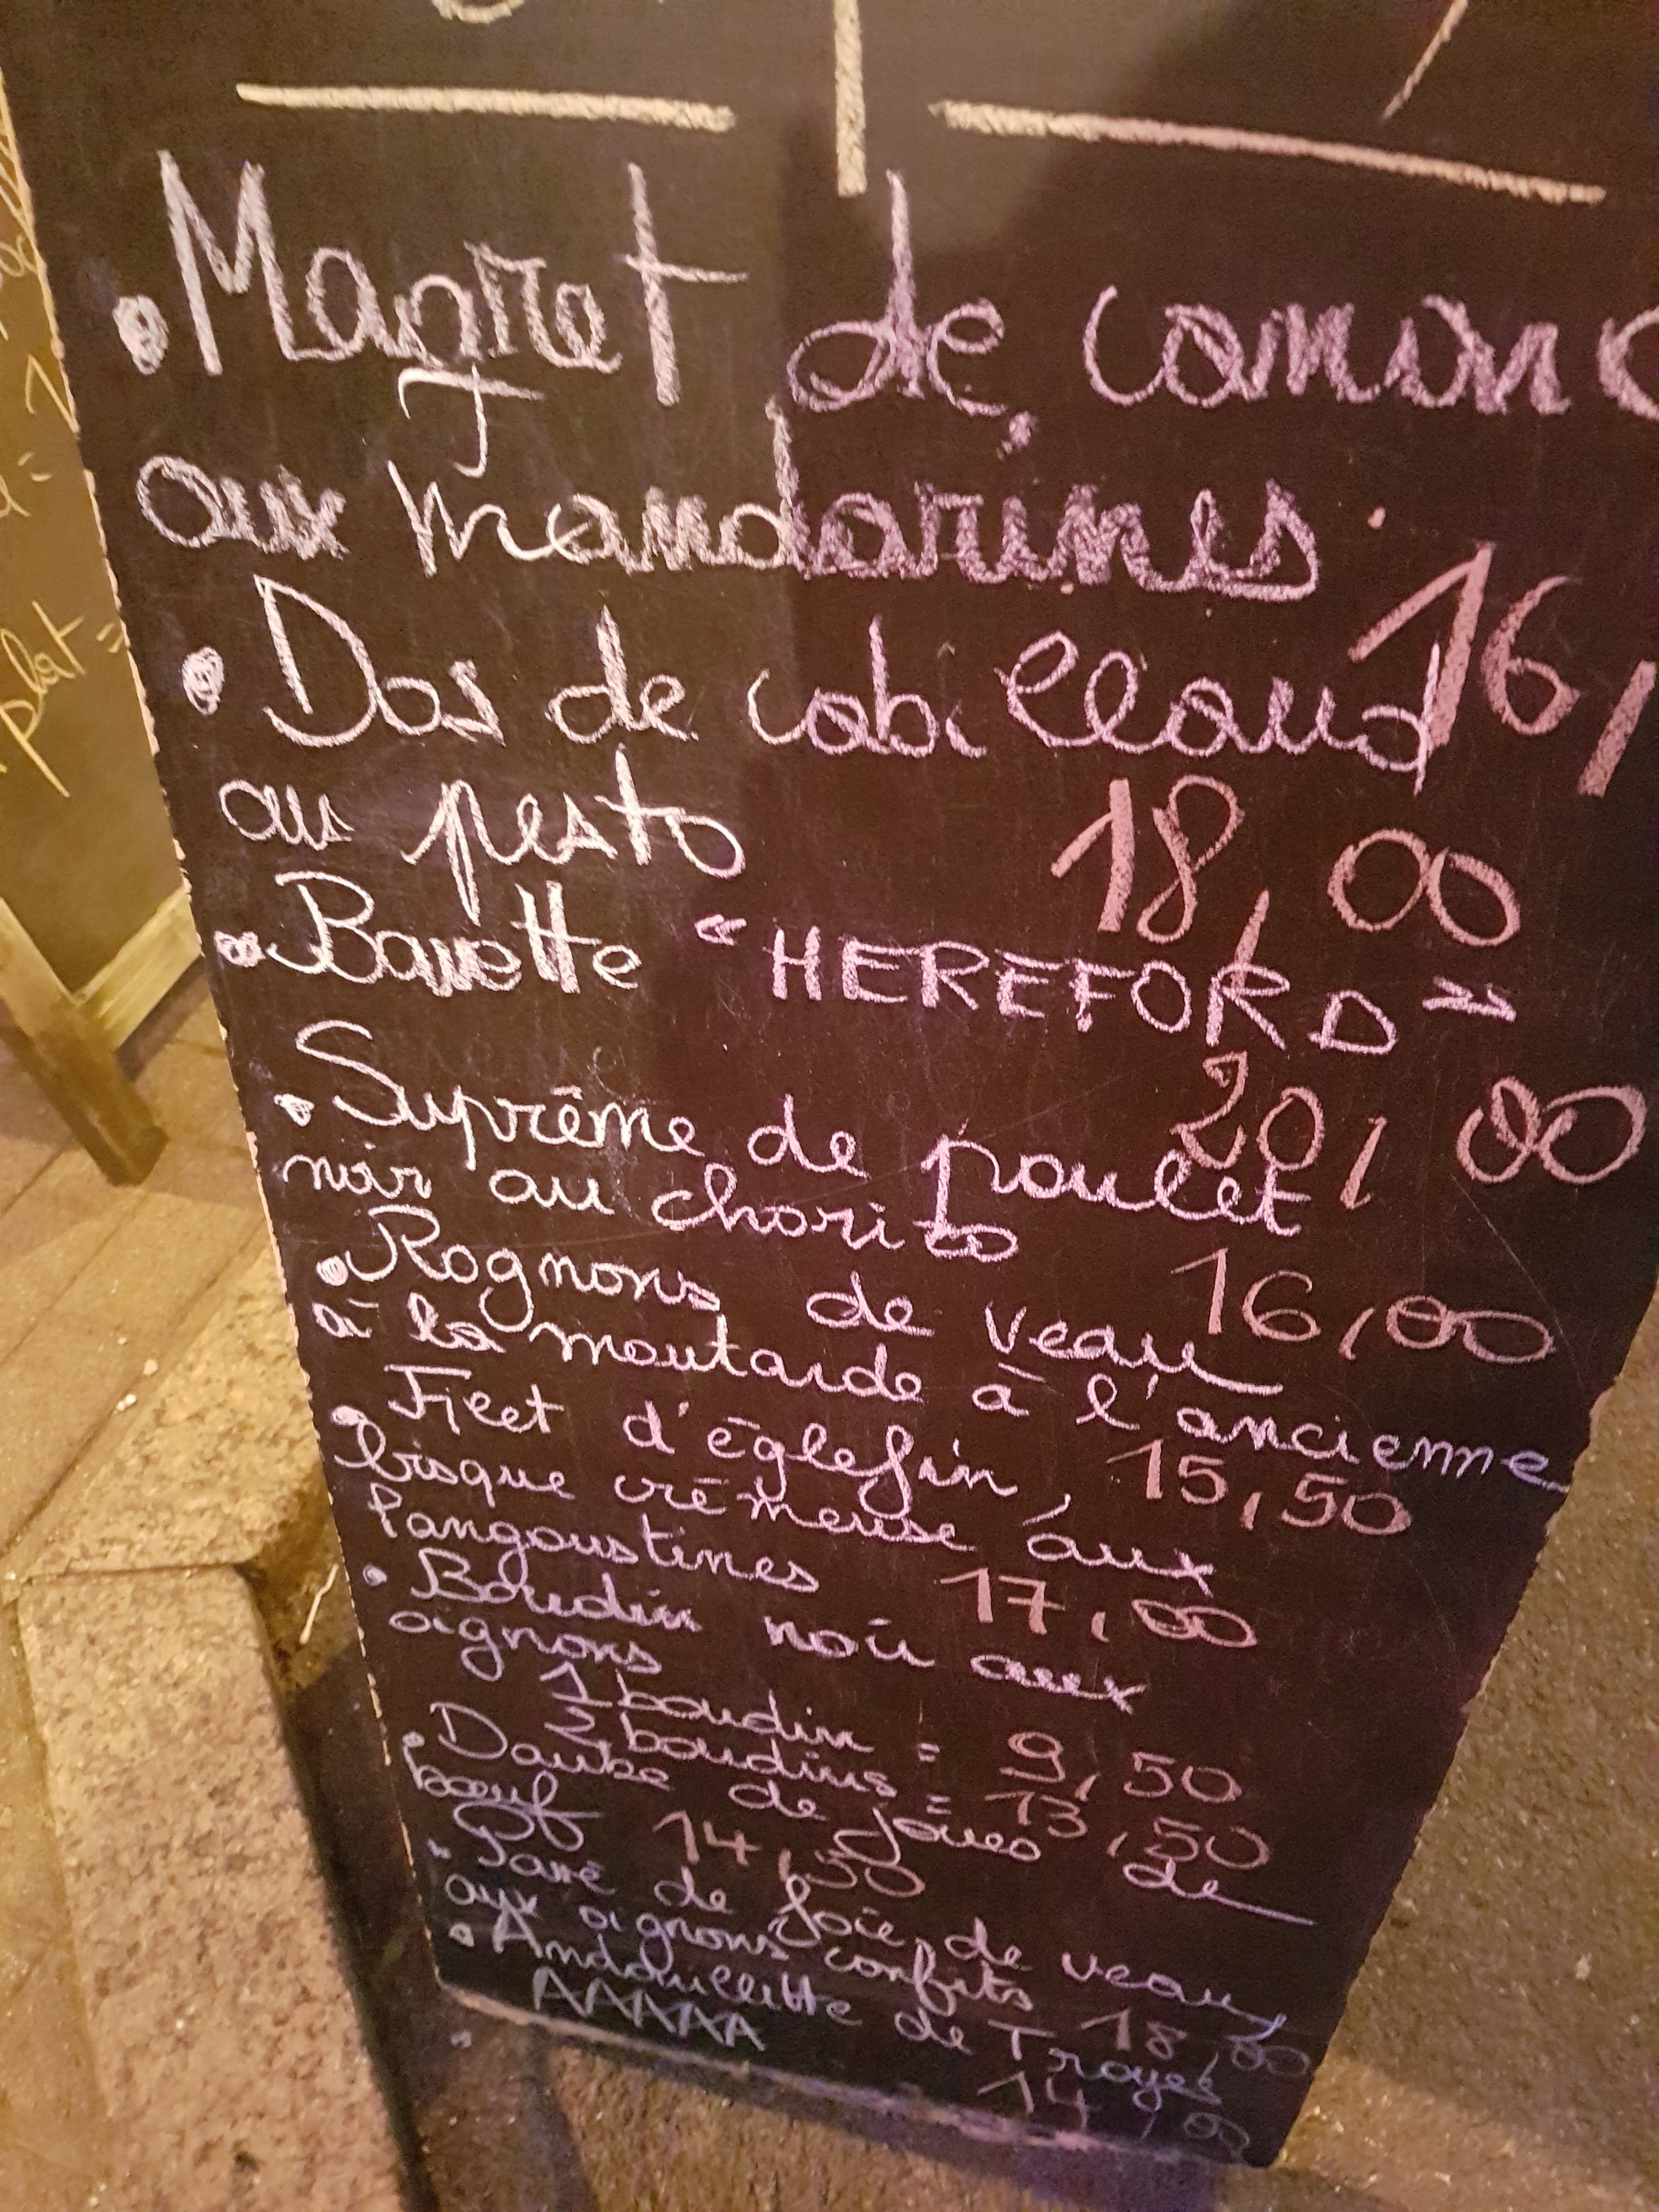 • Magret de canard
aux mandarines
16,
• Dos de cabillaud
au pesto 18,00
• Bavette "HEREFORD"
20,00
• Suprême de poulet
noir au chorizo
16,00
• Rognons de veau
à la moutarde à l'ancienne
15,50
• Filet d'églefin,
bisque crémeuse aux
langoustines 17,00
• Boudin noir aux
oignons
1 boudin = 9,50
2 boudins = 13,50
• Daube de joues de
bœuf 14,50
• Pavé de foie de veau,
aux oignons confits 18,00
• Andouillette de Troyes
AAAAA
14,00
plat =